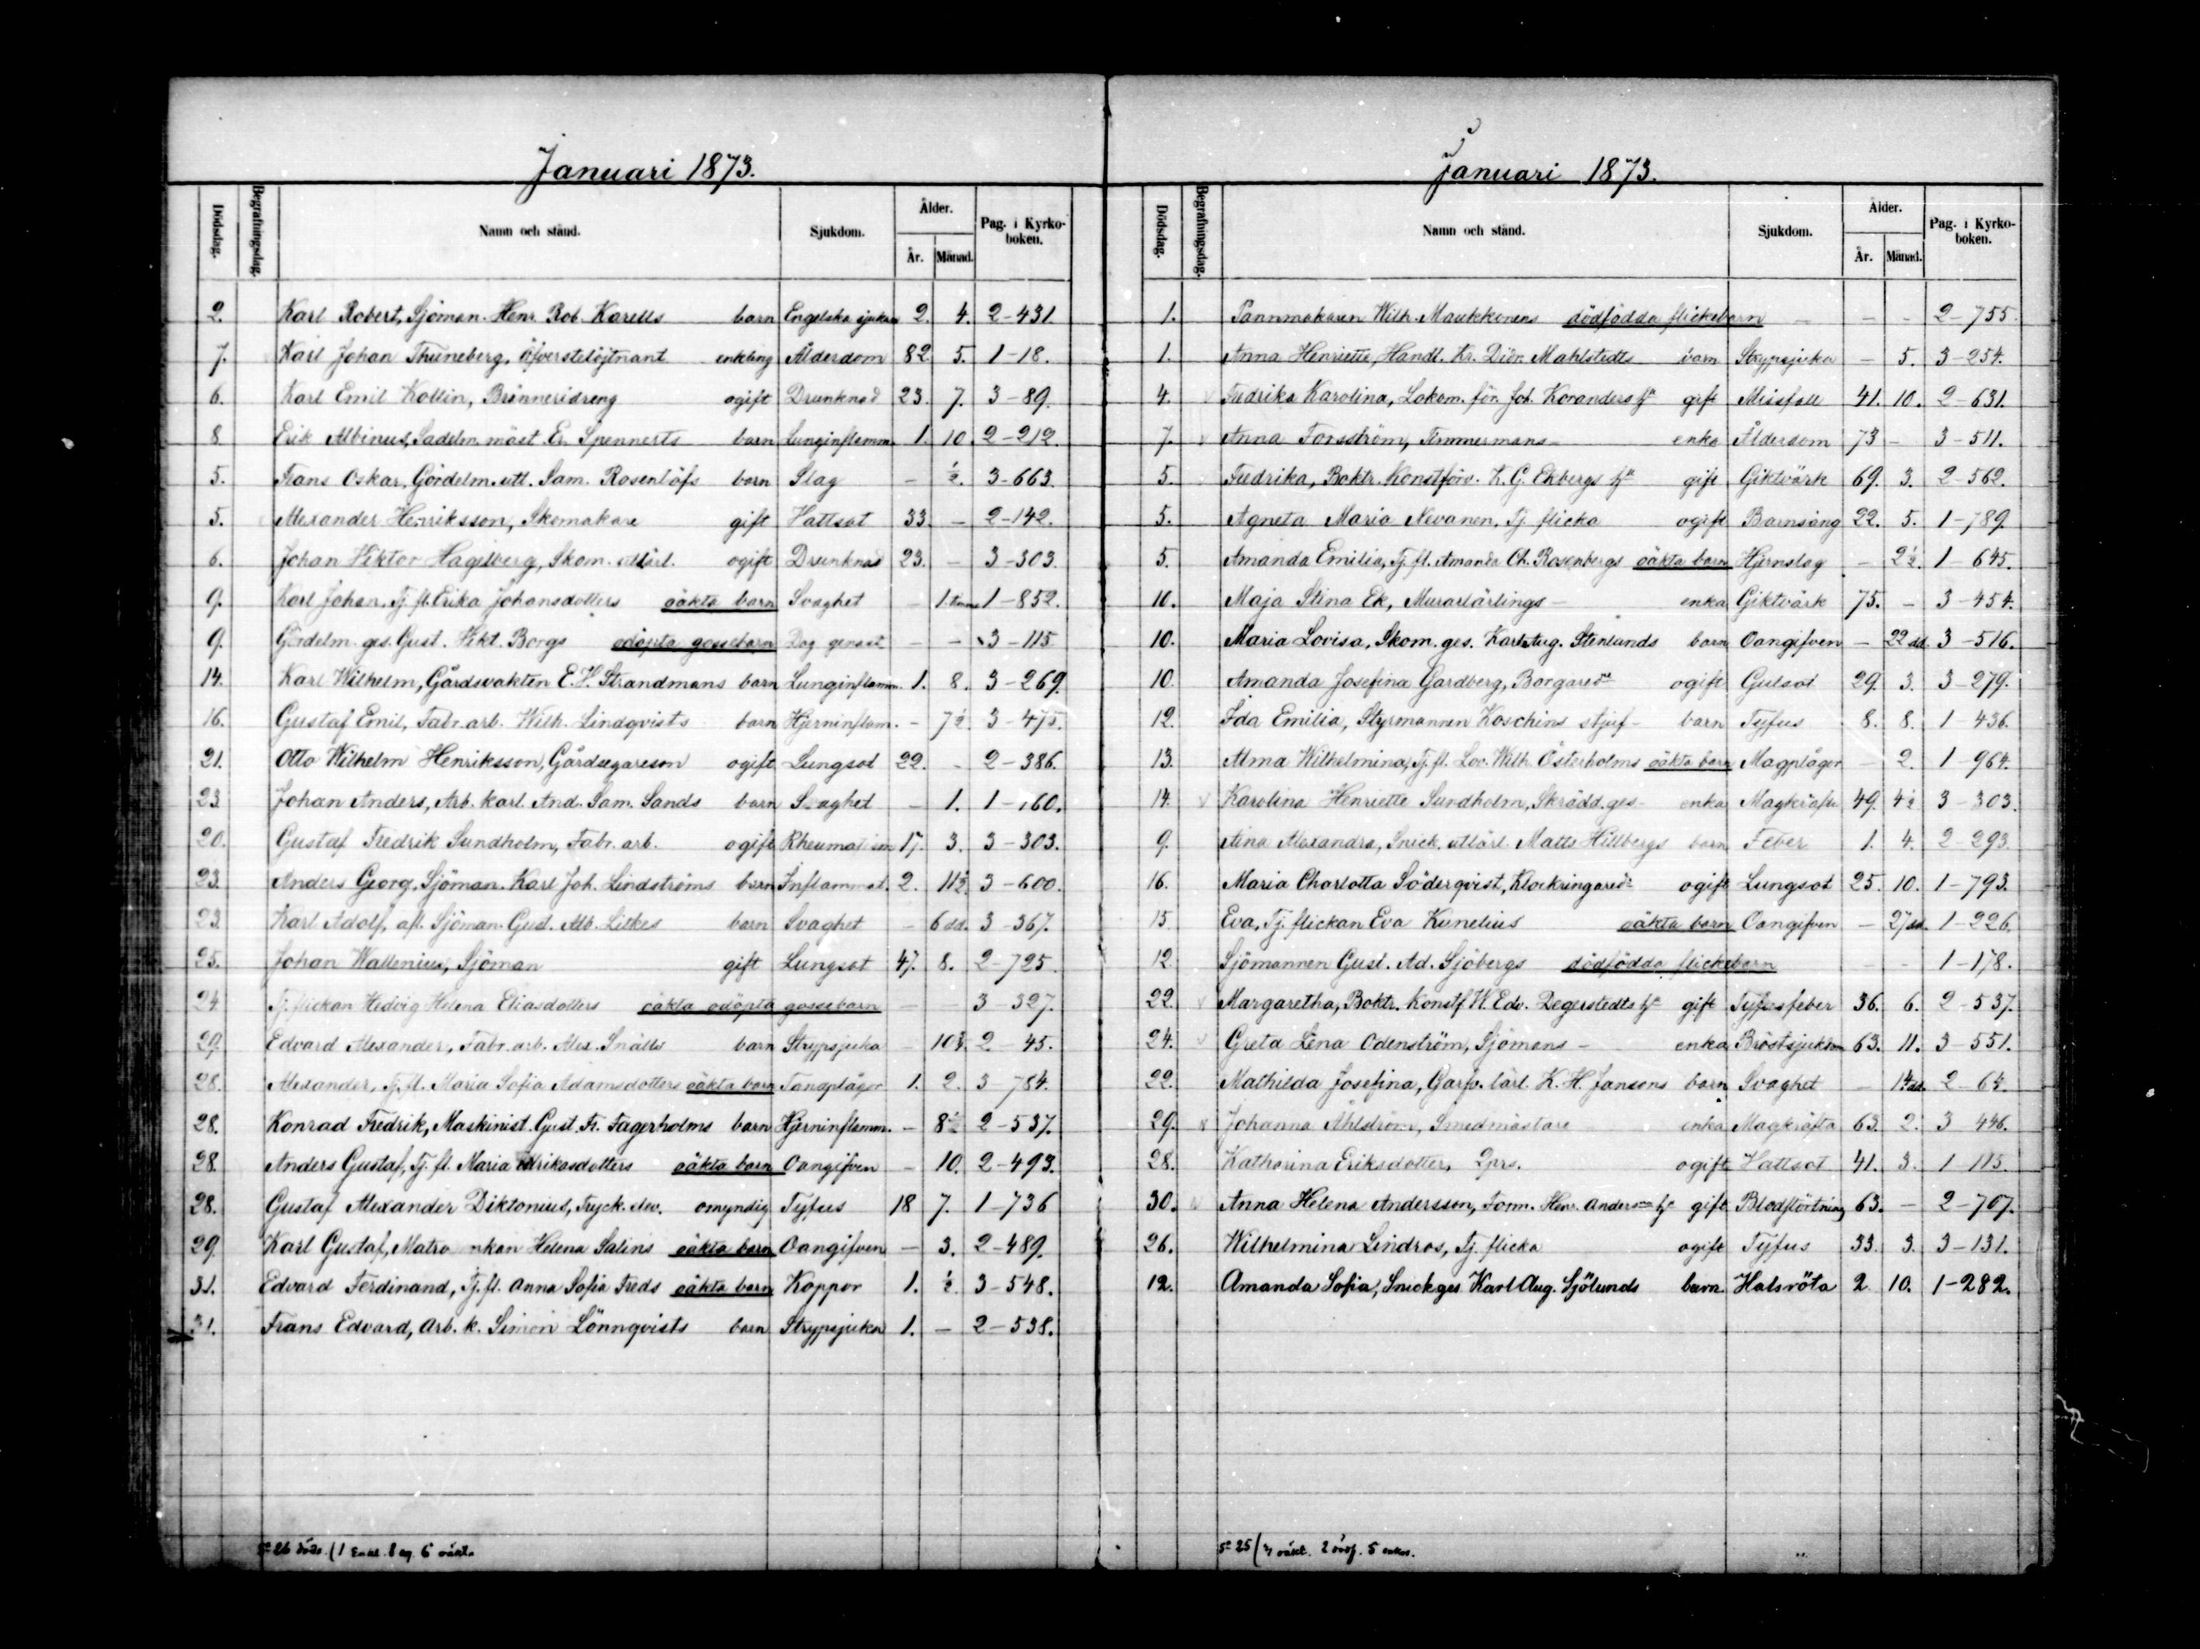 Januari 1873.
Dödsdag. Begrafningsdag. Namn och stånd. Sjukdom. Ålder. År. Månad. Pag. i Kyrkoboken.
2. Karl Robert, Sjöman. Henr. Rob. Karells barn Engelska sjukan 2. 4. 2-431.
7. Karl Johan Thuneberg, Öfverstelöjtnant enkling Ålderdom 82. 5. 1-18.
6. Karl Emil Kollin, Bränneridreng ogift Drunknad 23. 7. 3-89.
8 Erik Albinus, Sadelm. mäst. Er. Spennerts barn Lunginflamm. 1. 10. 2-212.
5. Frans Oskar, Gördelm. utl. Sam. Rosenlöfs barn Slag - ½. 3-663.
5. Alexander Henriksson, Skomakare gift Vattsot 33. - 2-142.
6. Johan Viktor Hagelberg, Skom. utlärl. ogift Drunknad 23. - 3-303.
9. Karl Johan, Tj. fl. Erika Johansdotters oäkta barn Svaghet - 1. timme 1-852.
9. Gördelm. ges. Gust. Vikt. Borgs odöpta gossebarn Dog genast - - 3-115
14. Karl Wilhelm, Gårdsvakten E. V. Strandmans barn Lunginflamm. 1. 8. 3-269.
16. Gustaf Emil, Fabr. arb. Wilh. Lindqvists barn Hjerninflam. - 7½. 3-475.
21. Otto Wilhelm Henriksson, Gårdsegareson ogift Lungsot 22. - 2-386.
23. Johan Anders, Arb. karl. And. Sam. Sands barn Svaghet - 1. 1-160.
20. Gustaf Fredrik Sundholm, Fabr. arb. ogift 17. 3. 3-303.
23. Anders Georg, Sjöman. Karl Joh. Lindströms barn Inflammat. 2. 11½. 3-600.
23. Karl Adolf, afl. Sjöman. Gust. Alb. Lilkes barn Svaghet - 6 dd. 3-367.
25. Johan Wallenius, Sjöman gift Lungsot 47. 8. 2-725.
24. Tj. flickan Hedvig Helena Eliasdotters oäkta odöpta gossebarn - - 3-327.
29. Edvard Alexander, Fabr. arb. Alex. Snälls barn Strypsjuka - 10½. 2-45.
28. Alexander, Tj. fl. Maria Sofia Adamsdotters oäkta barn Tandplågor 1. 2. 3-784.
28. Konrad Fredrik, Maskinist. Gust. Fr. Fagerholms barn Hjerninflamm. - 8½ 2-537.
28. Anders Gustaf, Tj. fl. Maria Ulrikasdotters oäkta barn Oangifven - 10. 2-493.
28. Gustaf Alexander Diktonius, Tryck. elev. omyndig Tyfus 18 7. 1-736
29. Karl Gustaf, Helena Salins oäkta barn Oangifven - 3. 2-489.
31. Edvard Ferdinand, Tj. fl. Anna Sofia Freds oäkta barn Koppor 1. ½. 3-548.
31. Frans Edvard, Arb. k. Simon Lönnqvists barn Strypsjuka 1. - 2-538.
26 1 enkl. 8 og. 6 oäkta
Januari 1873.
Dödsdag. Begrafningsdag. Namn och stånd. Sjukdom. Ålder. År. Månad. Pag. i Kyrkoboken.
1. Pannmakaren Wilh. Maukkonens dödfödda flickebarn - - - 2-755.
1. Anna Henriette, Handl. Kr. Mahlstedts barn Strypsjuka - 5. 3-254.
4. Fredrika Karolina, Lokom. för. Joh. Koranders hu gift Missfall 41. 10. 2-631.
7. Anna Forsström, Timmermans- enka Ålderdom 73 - 3-511.
5. Fredrika, Boktr. Konstförv. K. G. Ekbergs hu gift Giktvärk 69. 3. 2-562.
5. Agneta Maria Nevanen, Tj. flicka ogift Barnsäng 22. 5. 1-789.
5. Amanda Emilia, Tj. fl. Amanda Ch. Rosenbergs oäkta barn Hjernslag - 2½. 1-645.
10. Maja Stina Ek, Murarlärlings- enka Giktvärk 75. - 3-454.
10. Maria Lovisa, Skom. ges. Karl Aug. Stenlunds barn Oangifven - 22 dd. 3-516.
10. Amanda Josefina Gardberg, Borgaredr ogift Gulsot 29. 3. 3-279.
12. Ida Emilia, Styrmannen Koschins stjuf- barn Tyfus 8. 8. 1-436.
13. Alma Wilhelmina, Tj. fl. Lov. Wilh. Österholms oäkta barn Magplågor - 2. 1-964.
14. Karolina Henriette Sundholm, Skrädd. ges- enka Magkräfta 49. 4½ 3-303.
9. Aina Alexandra, Snick. utlärl. Matts Hillbergs barn Feber 1. 4. 2-293.
16. Maria Charlotta Söderqvist, Klockringaredr ogift Lungsot 25. 10. 1-793.
15. Eva, Tj. flickan Eva Kunelius oäkta barn Oangifven - 27 dd. 1-226.
12 Sjömannen Gust. Ad. Sjöbergs dödfödda flickebarn - 1-178.
22. Margaretha, Boktr. Konstf. W. Edv. Degerstedts hu gift Tyfusfeber 36. 6. 2-537.
24. Greta Lena Odenström, Sjömans- enka Bröstsjukdom 63. 11. 3-551.
22. Mathilda Josefina, Garfv. lärl. K. H. Jansons barn Svaghet - 14 dd. 2-64.
29. Johanna Åhlström, Smedmästare enka Magkräfta 63. 2. 3-446.
28. Katharina Eriksdotter, ogift Vattsot 41. 3. 1-115.
30. Anna Helena Andersson, Form. Henr. Anderssons hu gift Blodstörtning 63. - 2-707.
26. Wilhelmina Lindros, Tj. flicka ogift Tyfus 33. 3. 3-131.
12. Amanda Sofia, Snickges. Karl Aug. Sjölunds barn Halsröta 2 10. 1-282.
25 oäkt. 2 5 enkor.